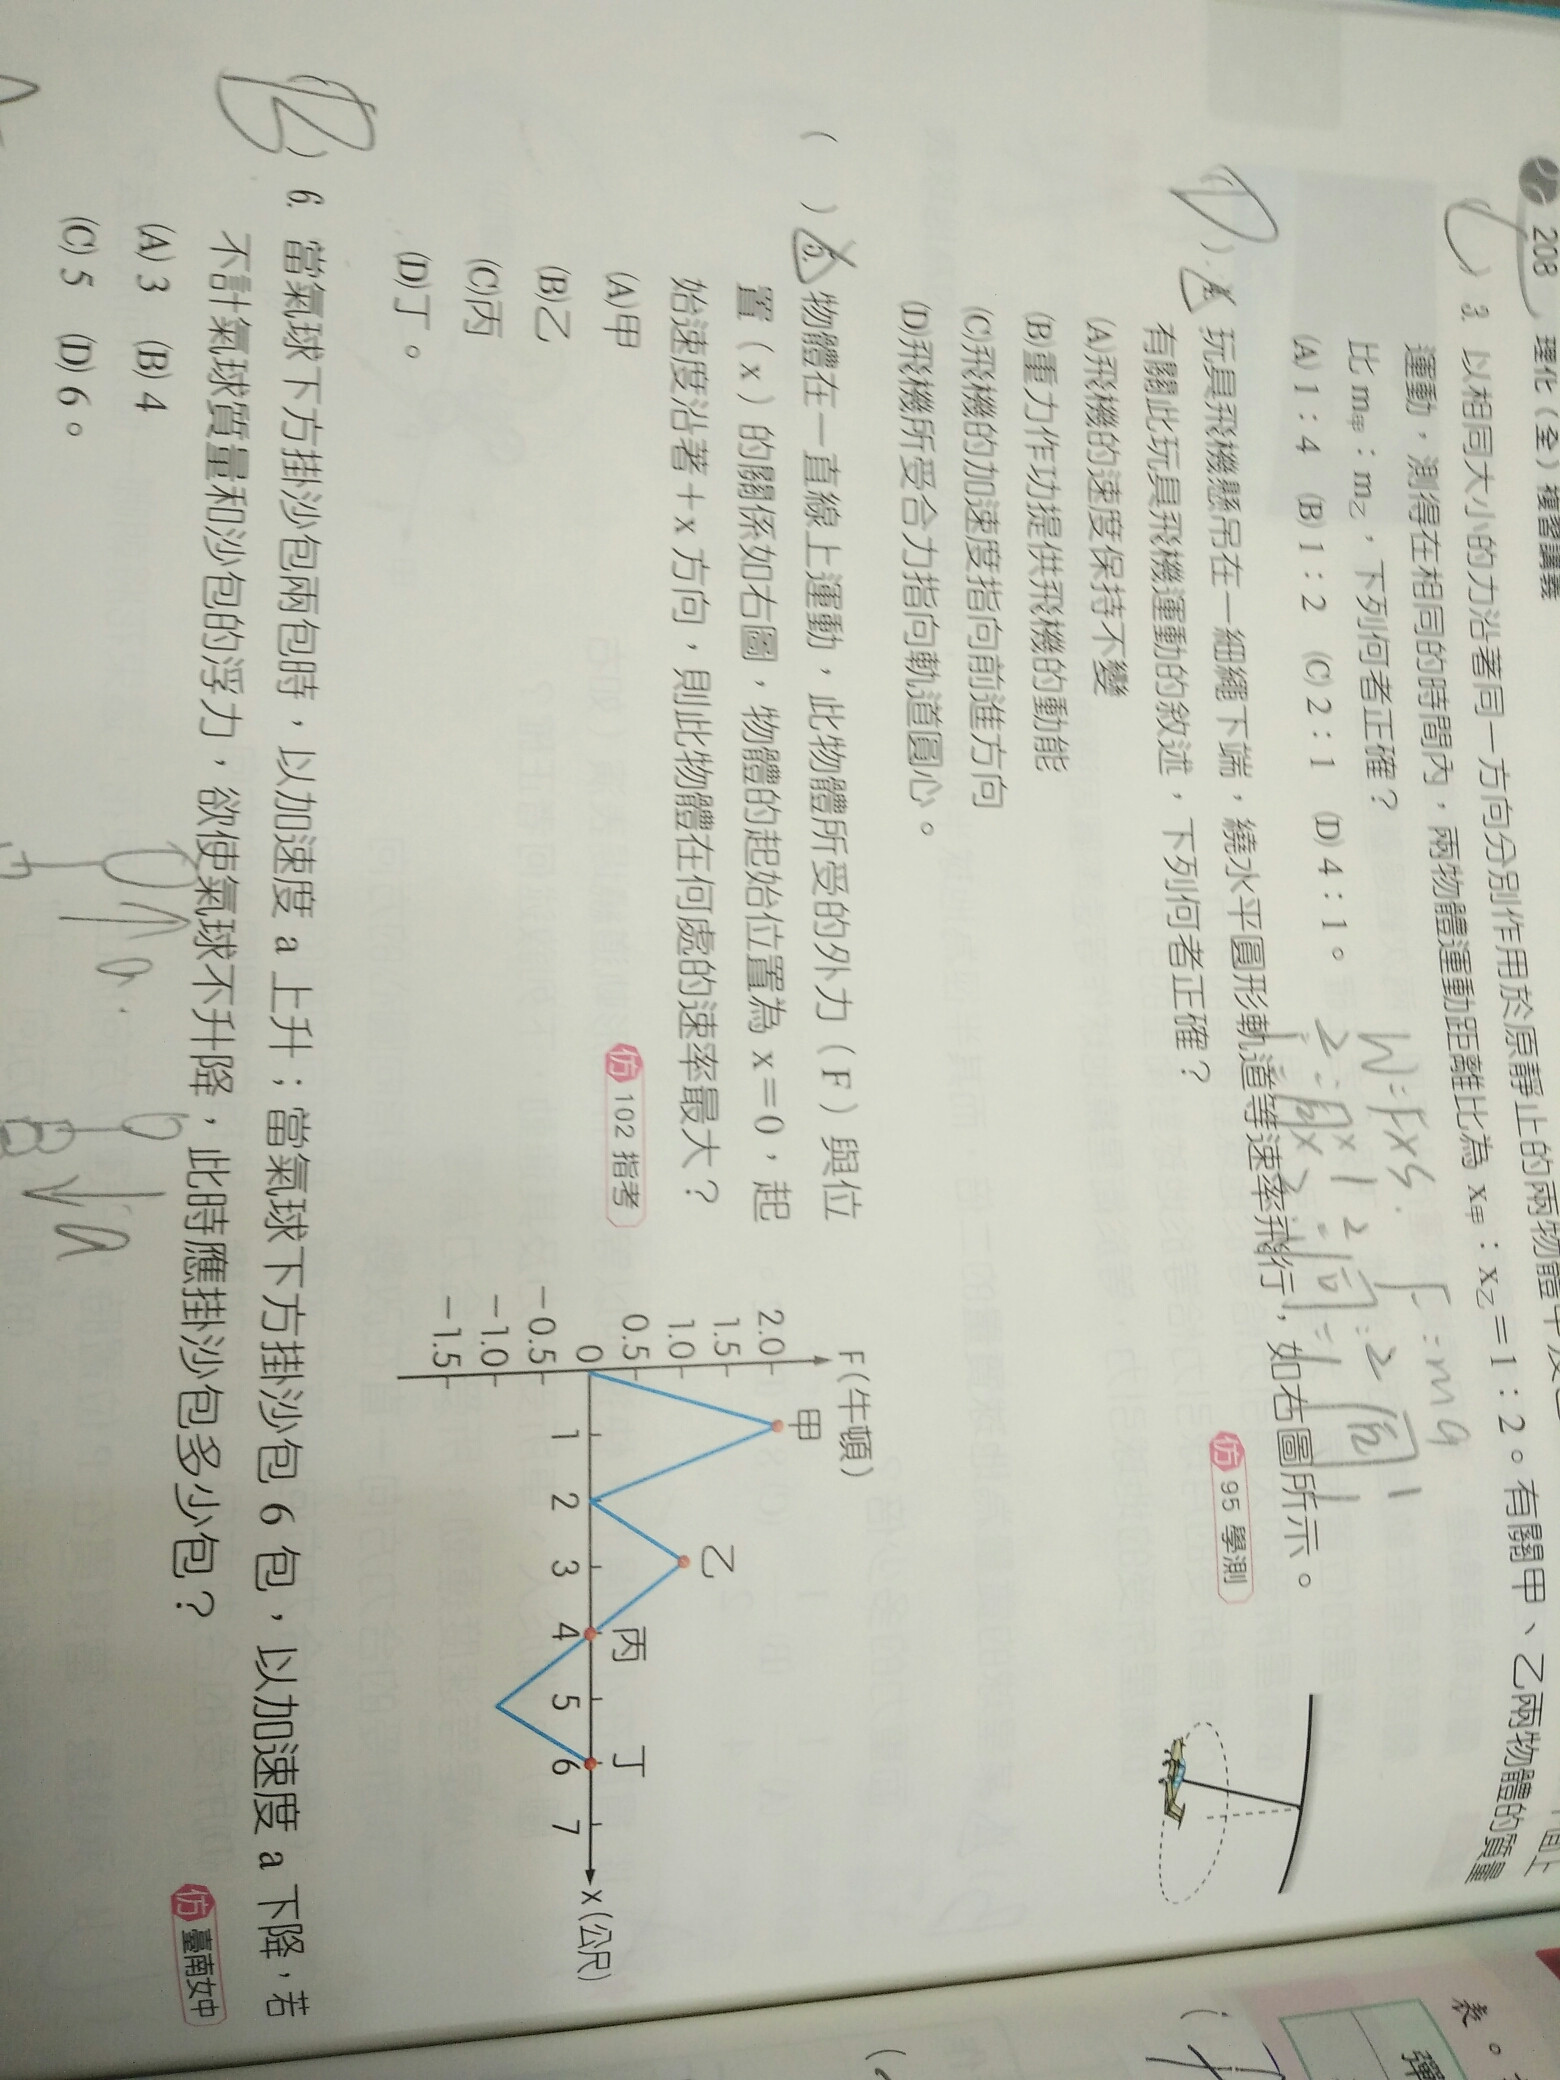 208 理化（全）複習講義
3. 以相同大小的力沿著同一方向分別作用於原靜止的兩物體甲及乙
運動，測得在相同的時間內，兩物體運動距離比為 x甲：x乙＝1：2。有關甲、乙兩物體的質量
比 m甲：m乙，下列何者正確？
(A) 1：4 (B) 1：2 (C) 2：1 (D) 4：1。
W=F×S. F=ma
4. 玩具飛機懸吊在一細繩下端，繞水平圓形軌道等速率飛行，如右圖所示。
有關此玩具飛機運動的敘述，下列何者正確？
仿 95 學測
(A)飛機的速度保持不變
(B)重力作功提供飛機的動能
(C)飛機的加速度指向前進方向
(D)飛機所受合力指向軌道圓心。
( ) 5. 物體在一直線上運動，此物體所受的外力（F）與位
置（x）的關係如右圖，物體的起始位置為 x＝0，起
始速度沿著＋x 方向，則此物體在何處的速率最大？
仿 102 指考
(A)甲
(B)乙
(C)丙
(D)丁。
F(牛頓)
2.0
1.5
1.0
0.5
0
－0.5
－1.0
－1.5
甲
乙
丙
丁
1 2 3 4 5 6 7
x(公尺)
(B) 6. 當氣球下方掛沙包兩包時，以加速度 a 上升；當氣球下方掛沙包 6 包，以加速度 a 下降，若
不計氣球質量和沙包的浮力，欲使氣球不升降，此時應掛沙包多少包？
仿 臺南女中
(A) 3 (B) 4
(C) 5 (D) 6。
a
a
表。
彈